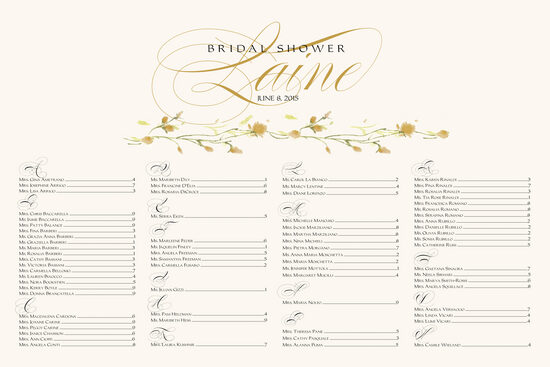 BRIDAL SHOWER
Laine
JUNE 8, 2015
A
Mrs. Gina Ametrano 4
Mrs. Josephine Arrigo 7
Mrs. Lisa Arrigo 3
B
Mrs. Chris Baccarella 9
Ms. Jaime Baccarella 9
Mrs. Patty Balance 9
Mrs. Fina Barberi 3
Mrs. Grazia Anna Barberi 1
Ms. Graziella Barberi 1
Ms. Maria Barberi 1
Ms. Rosalia Barberi 1
Mrs. Cathy Basiani 3
Ms. Victoria Basiani
Mrs. Carmela Bellomo 7
Ms. Lauren Biracco 4
Mrs. Nora Bookstein 5
Mrs. Kerry Boyle 9
Mrs. Donna Brancatella 9
C
Mrs. Magdalena Cardona 6
Ms. Joyann Carine 9
Mrs. Peggy Carine 9
Mrs. Janice Chasson 6
Mrs. Ann Coppi 6
Mrs. Angela Conti 8
D
Ms. Maribeth Dey 1
Mrs. Francine D'Elia 6
Mrs. Rosaria DiCroce 8
E
Ms. Serra Eken 5
F
Ms. Marlziene Pierre 6
Ms. Jocquelin Finley 5
Mrs. Angela Freeman 5
Ms. Samantha Freeman 5
Ms. Carmella Fusaro
G
Ms. Juliana Gizzi 1
H
Mrs. Pam Heldman 4
Ms. Maribeth Hess 9
K
Mrs. Laura Klephar 7
L
Ms. Carol La Bianco 2
Ms. Marcy Lentine 4
Mrs. Diane Lorenzo 5
M
Mrs. Michelle Mangano 4
Mrs. Jackie Marziliano 8
Mrs. Martha Marziliano 8
Ms. Nina Micheli 8
Mrs. Pietra Morgano 7
Ms. Anna Maria Morchetta 2
Mrs. Maria Morchetta 2
Ms. Jennifer Mottola 1
Ms. Margaret Mucioli 4
N
Mrs. Maria Nocio 9
P
Mrs. Theresa Pane 5
Ms. Cathy Pasquale 3
Mrs. Alanna Poma 5
R
Mrs. Karen Rinaldi 3
Mrs. Pina Rinaldi 7
Mrs. Rosalia Rinaldi 3
Ms. Tia Rose Rinaldi
Mrs. Francesca Romano 8
Ms. Rosalia Romano
Mrs. Serafina Romano 8
Mrs. Anna Rubillo
Mrs. Danielle Rubillo 2
Ms. Olivia Rubillo 2
Ms. Sonia Rubillo
Ms. Catherine Ruisi
S
Mrs. Gaetana Sinagra 7
Ms. Neela Shivare 5
Ms. Marya Smith-Ross
Mrs. Angela Squillace 8
V
Mrs. Angela Vernaggio 7
Mrs. Linda Vicari 4
Mrs. Lumi Vicari 4
W
Mrs. Camile Wieland 4